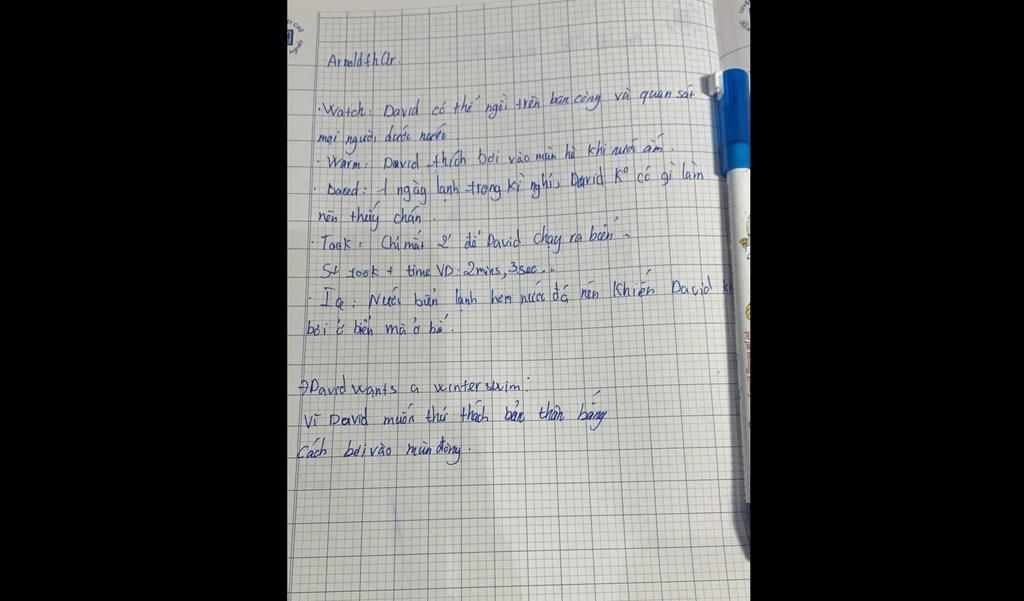 Arnold th Ur.
• Watch: David có thể ngồi trên ban công và quan sát
mọi người dưới nước.
• Warm: David thích bơi vào mùa hè khi nước ấm.
• Bored: 1 ngày lạnh trong kì nghỉ, David K° có gì làm
nên thấy chán.
• Took: Chỉ mất 2' để David chạy ra biển.
St took + time VD: 2mins, 3sec...
Nước biển lạnh hơn nước đá nên khiến David
bơi ở biển mà ở bể.
→ David wants a winter swim:
Vì David muốn thử thách bản thân bằng
cách bơi vào mùa đông.